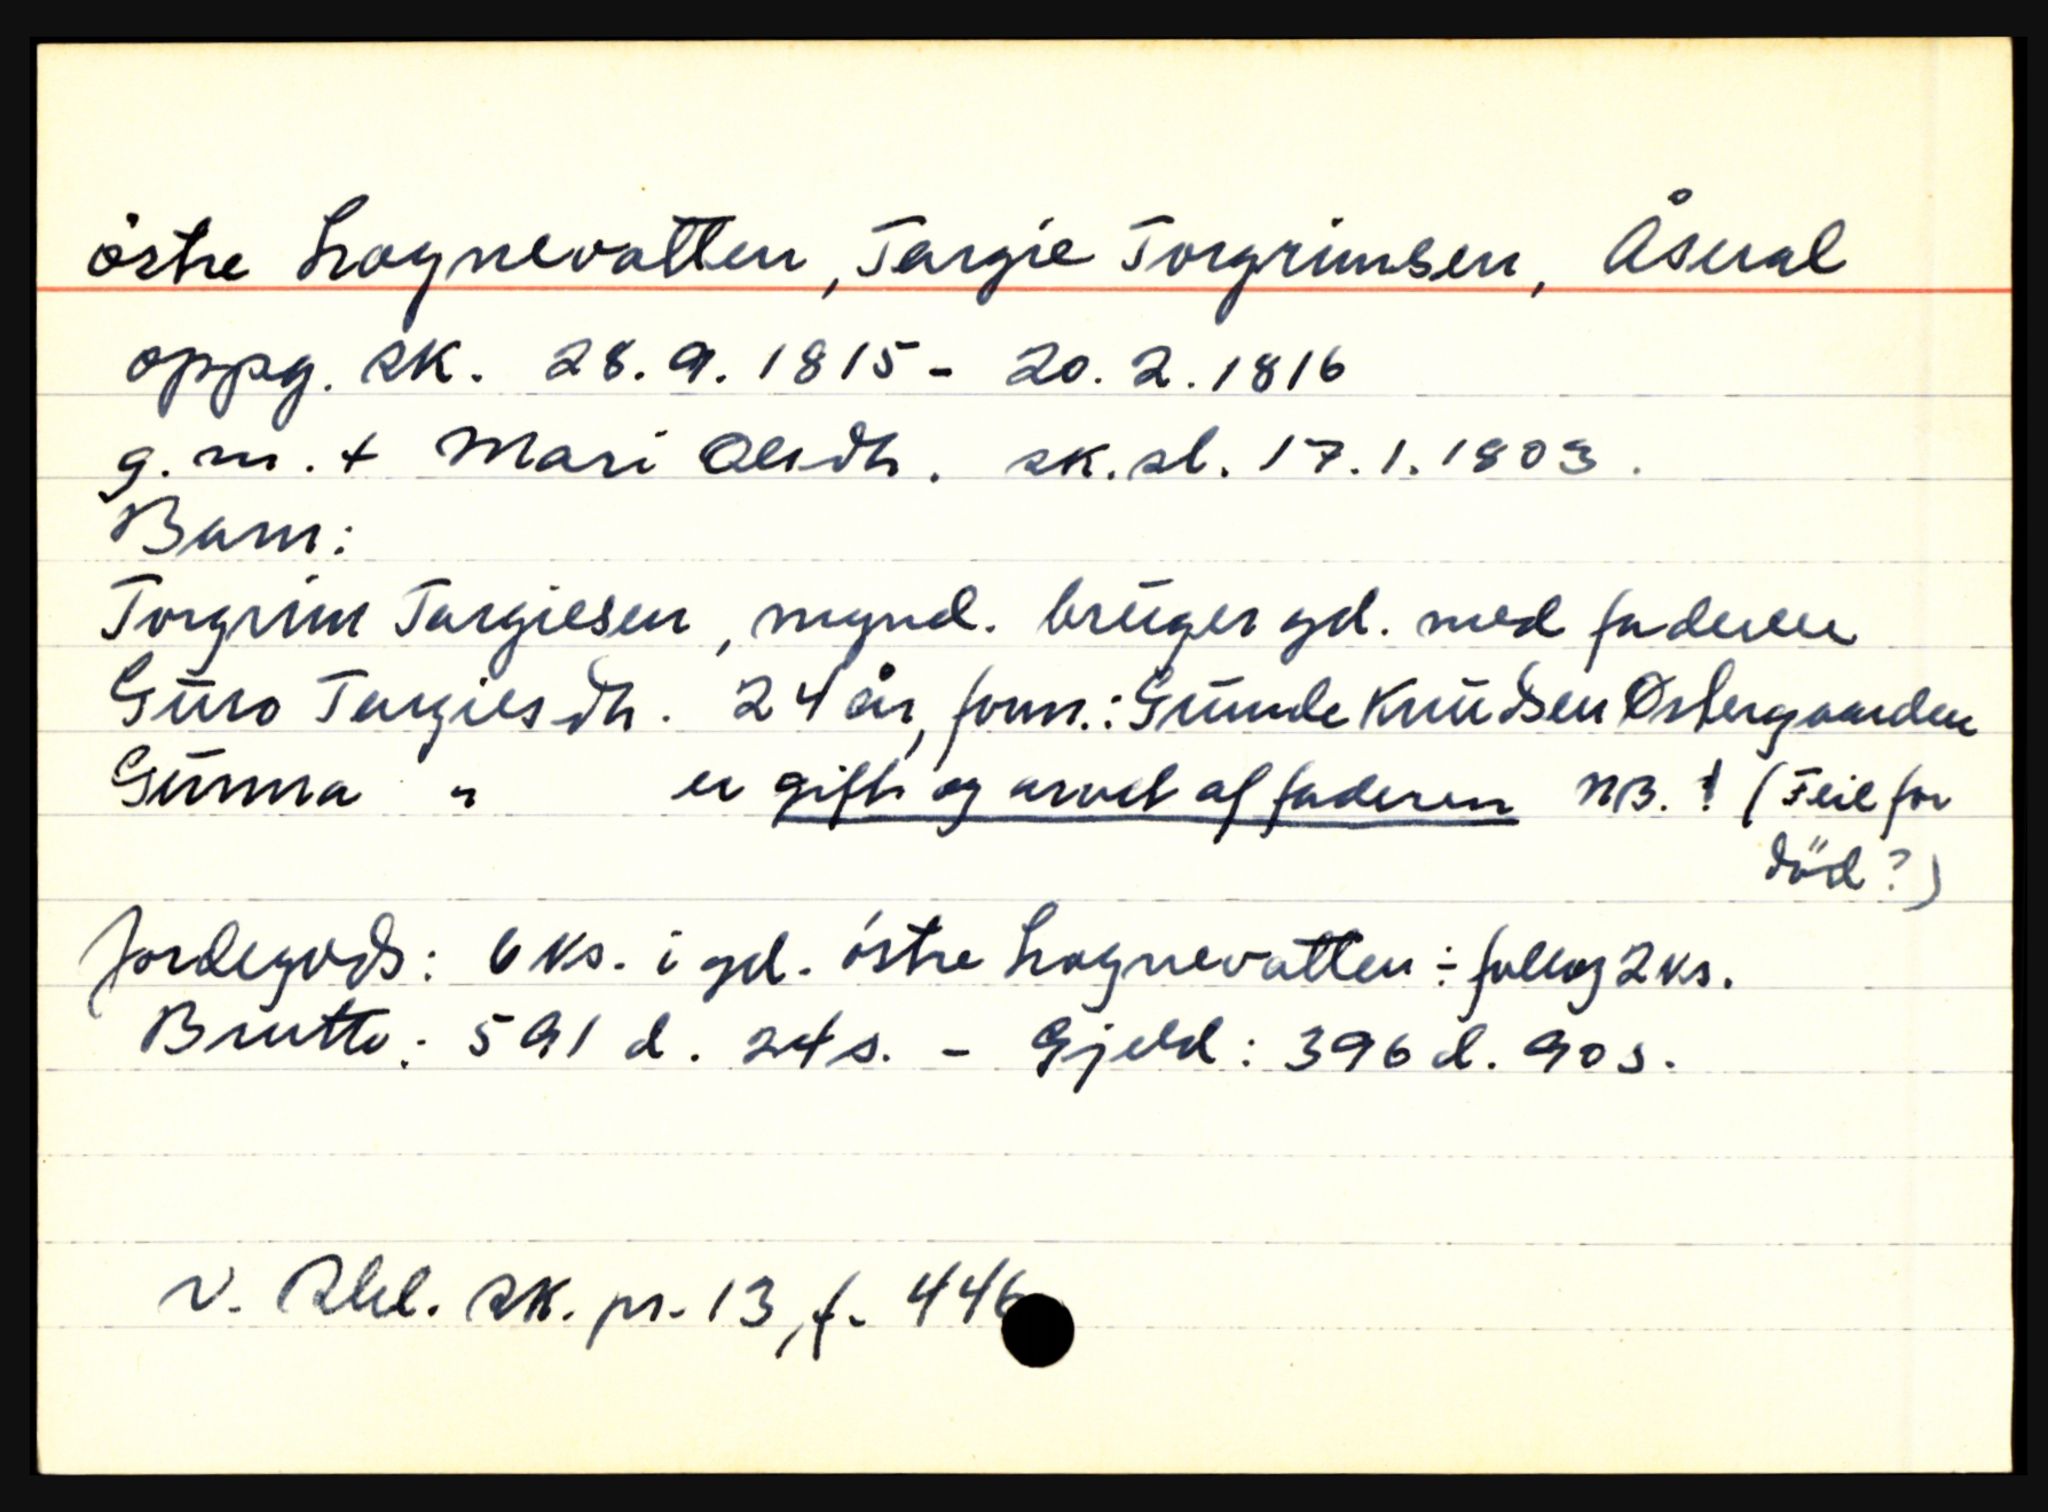 östre Lognevatten, Targie Torgrimsen, Åseral
oppg. sk. 28.9.1815 - 20.2.1816
g.m. + Mari Olsdtr. sk.sl. 17.1.1803.
Barn:
Torgrim Targiesen, mynd. bruger gd. med faderen
Guro Targiesdtr. 24 år, form.: Gunde Knudsen Østergaarden
Gunna " er gift og arvet af faderen NB.! (Feil for
död?)
Jordegods: 6 ks. i gd. östre Lognevatten ÷ follog 2 ks.
Brutto: 591 d. 24 s. - Gjeld: 396 d. 90 s.
V. Rbl. sk. pr. 13, f. 446